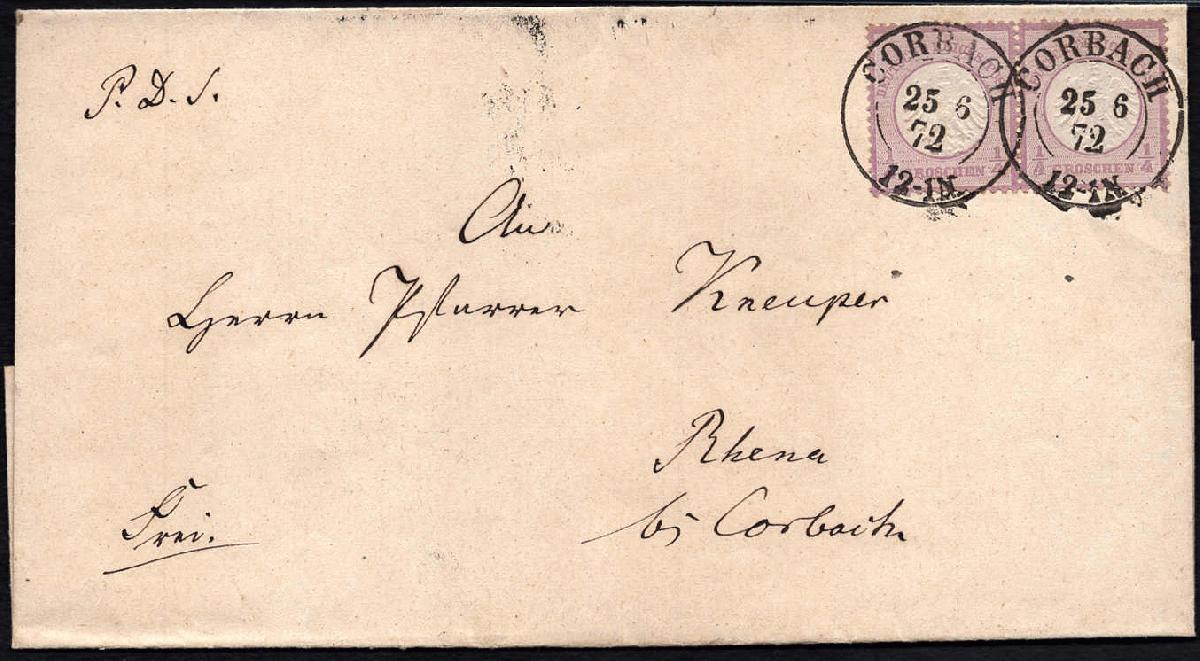 P. D. S.
CORBACH
25 6
72
12-1N.
CORBACH
25 6
72
12-1N
¼ GROSCHEN ¼
¼ GROSCHEN ¼
An
Herrn Pfarrer Kneuper
Rhena
bei Corbach
Frei.